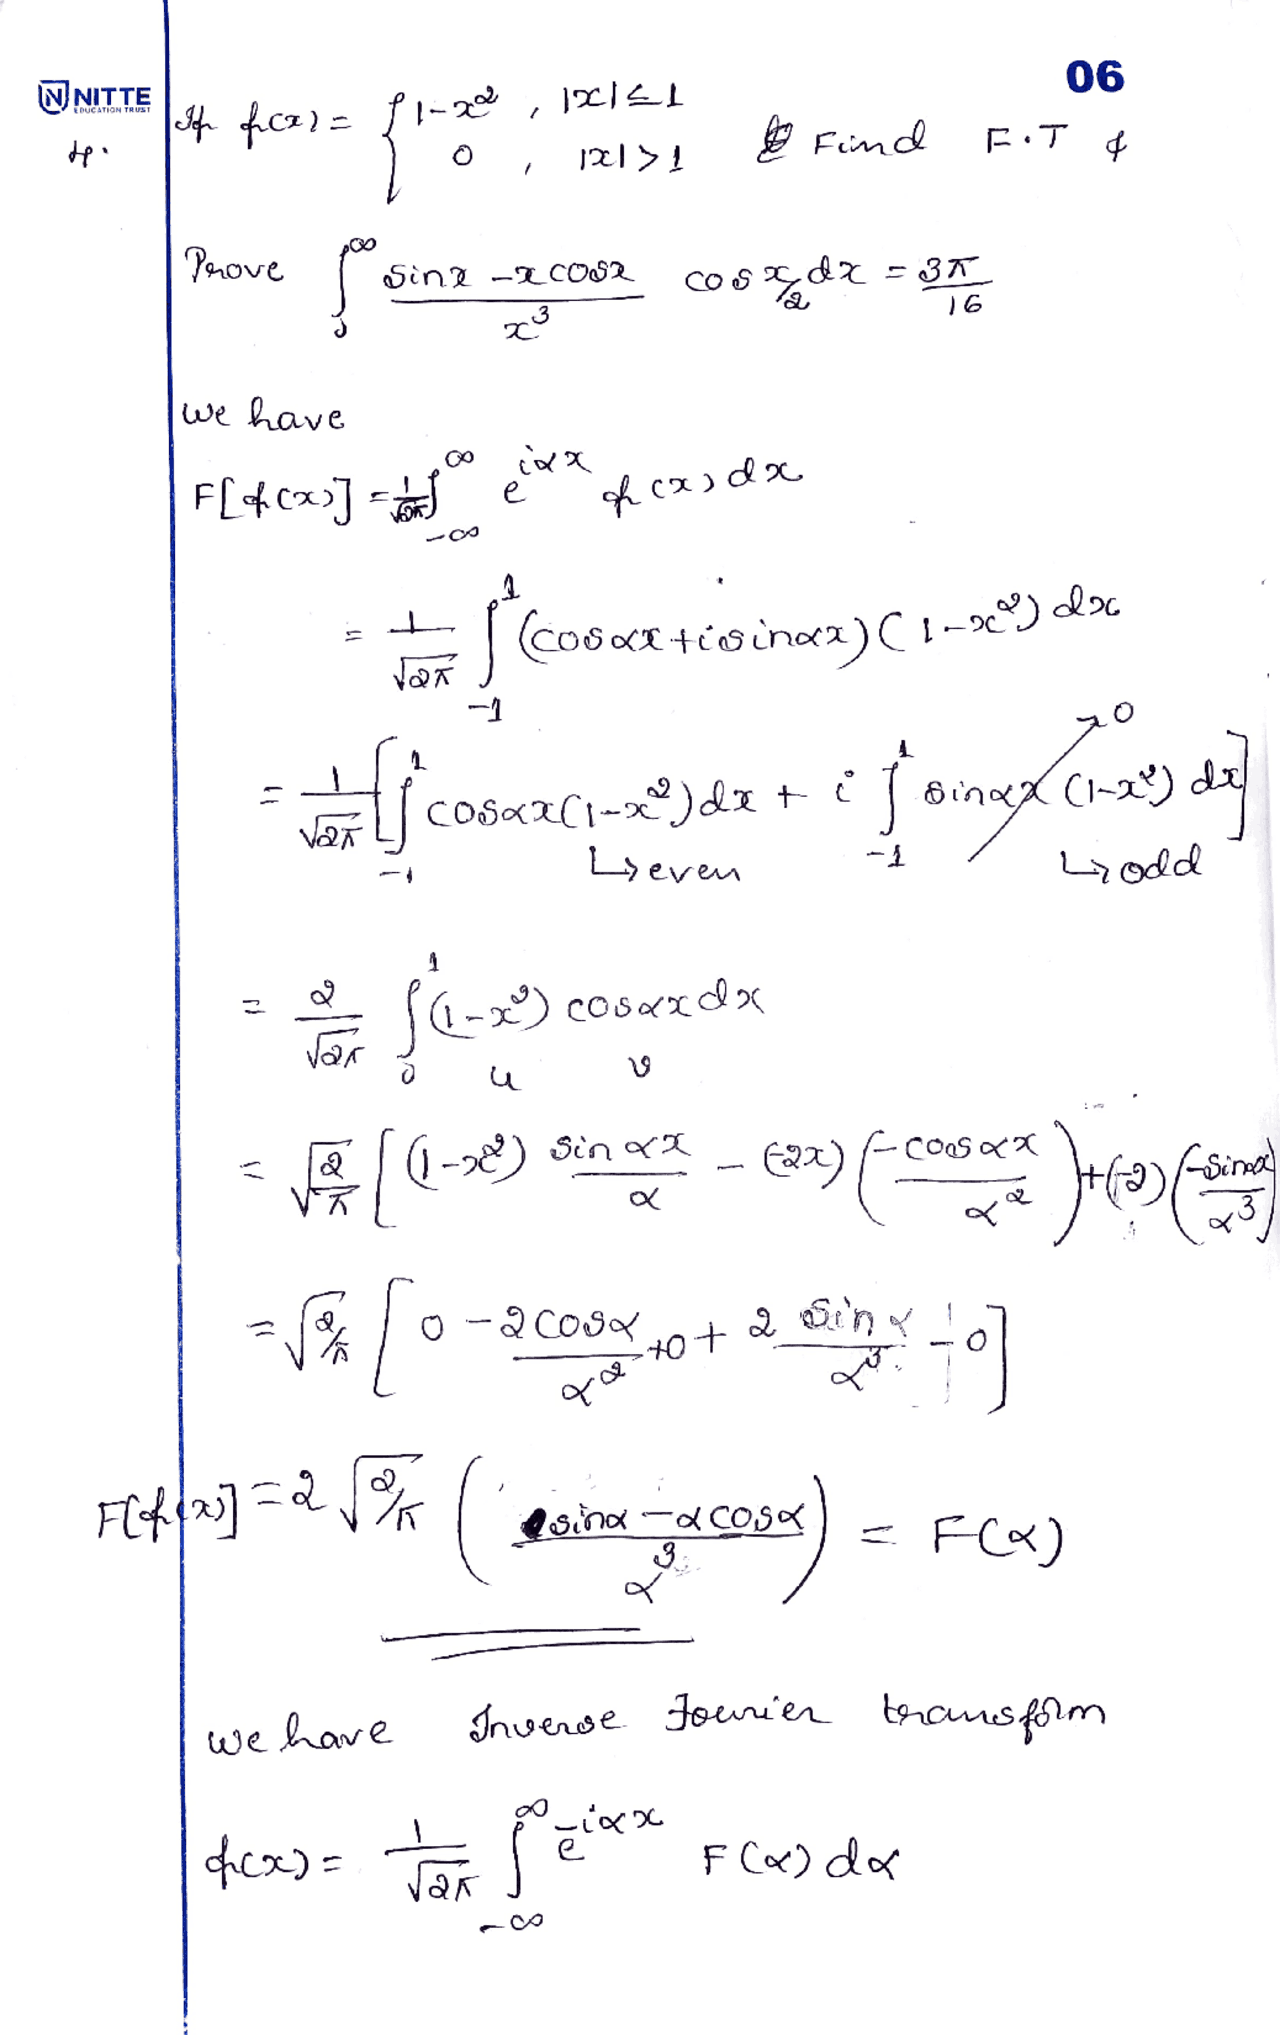 06
NITTE
EDUCATION TRUST
4. If f(x) = { 1-x² , |x|≤1
0 , |x|>1 Find F.T &
Prove ∫₀^∞ (sinx - x cosx)/x³ cos x/2 dx = 3π/16
we have
F[f(x)] = 1/√2π ∫_{-∞}^{∞} e^{iαx} f(x) dx
= 1/√2π ∫_{-1}^{1} (cosαx + i sinαx) (1-x²) dx
= 1/√2π [ ∫_{-1}^{1} cosαx (1-x²) dx + i ∫_{-1}^{1} sinαx (1-x²) dx ] → 0
↳ even ↳ odd
= 2/√2π ∫₀^1 (1-x²) cosαx dx
u v
= √(2/π) [ (1-x²) sin αx/α - (-2x) (-cosαx/α²) + (-2) (-sinαx/α³)
= √(2/π) [ 0 - 2cosα/α² + 0 + 2 sinα/α³ - 0 ]
F[f(x)] = 2 √(2/π) ( (sinα - α cosα)/α³ ) = F(α)
we have Inverse Fourier transform
f(x) = 1/√2π ∫_{-∞}^{∞} e^{-iαx} F(α) dα